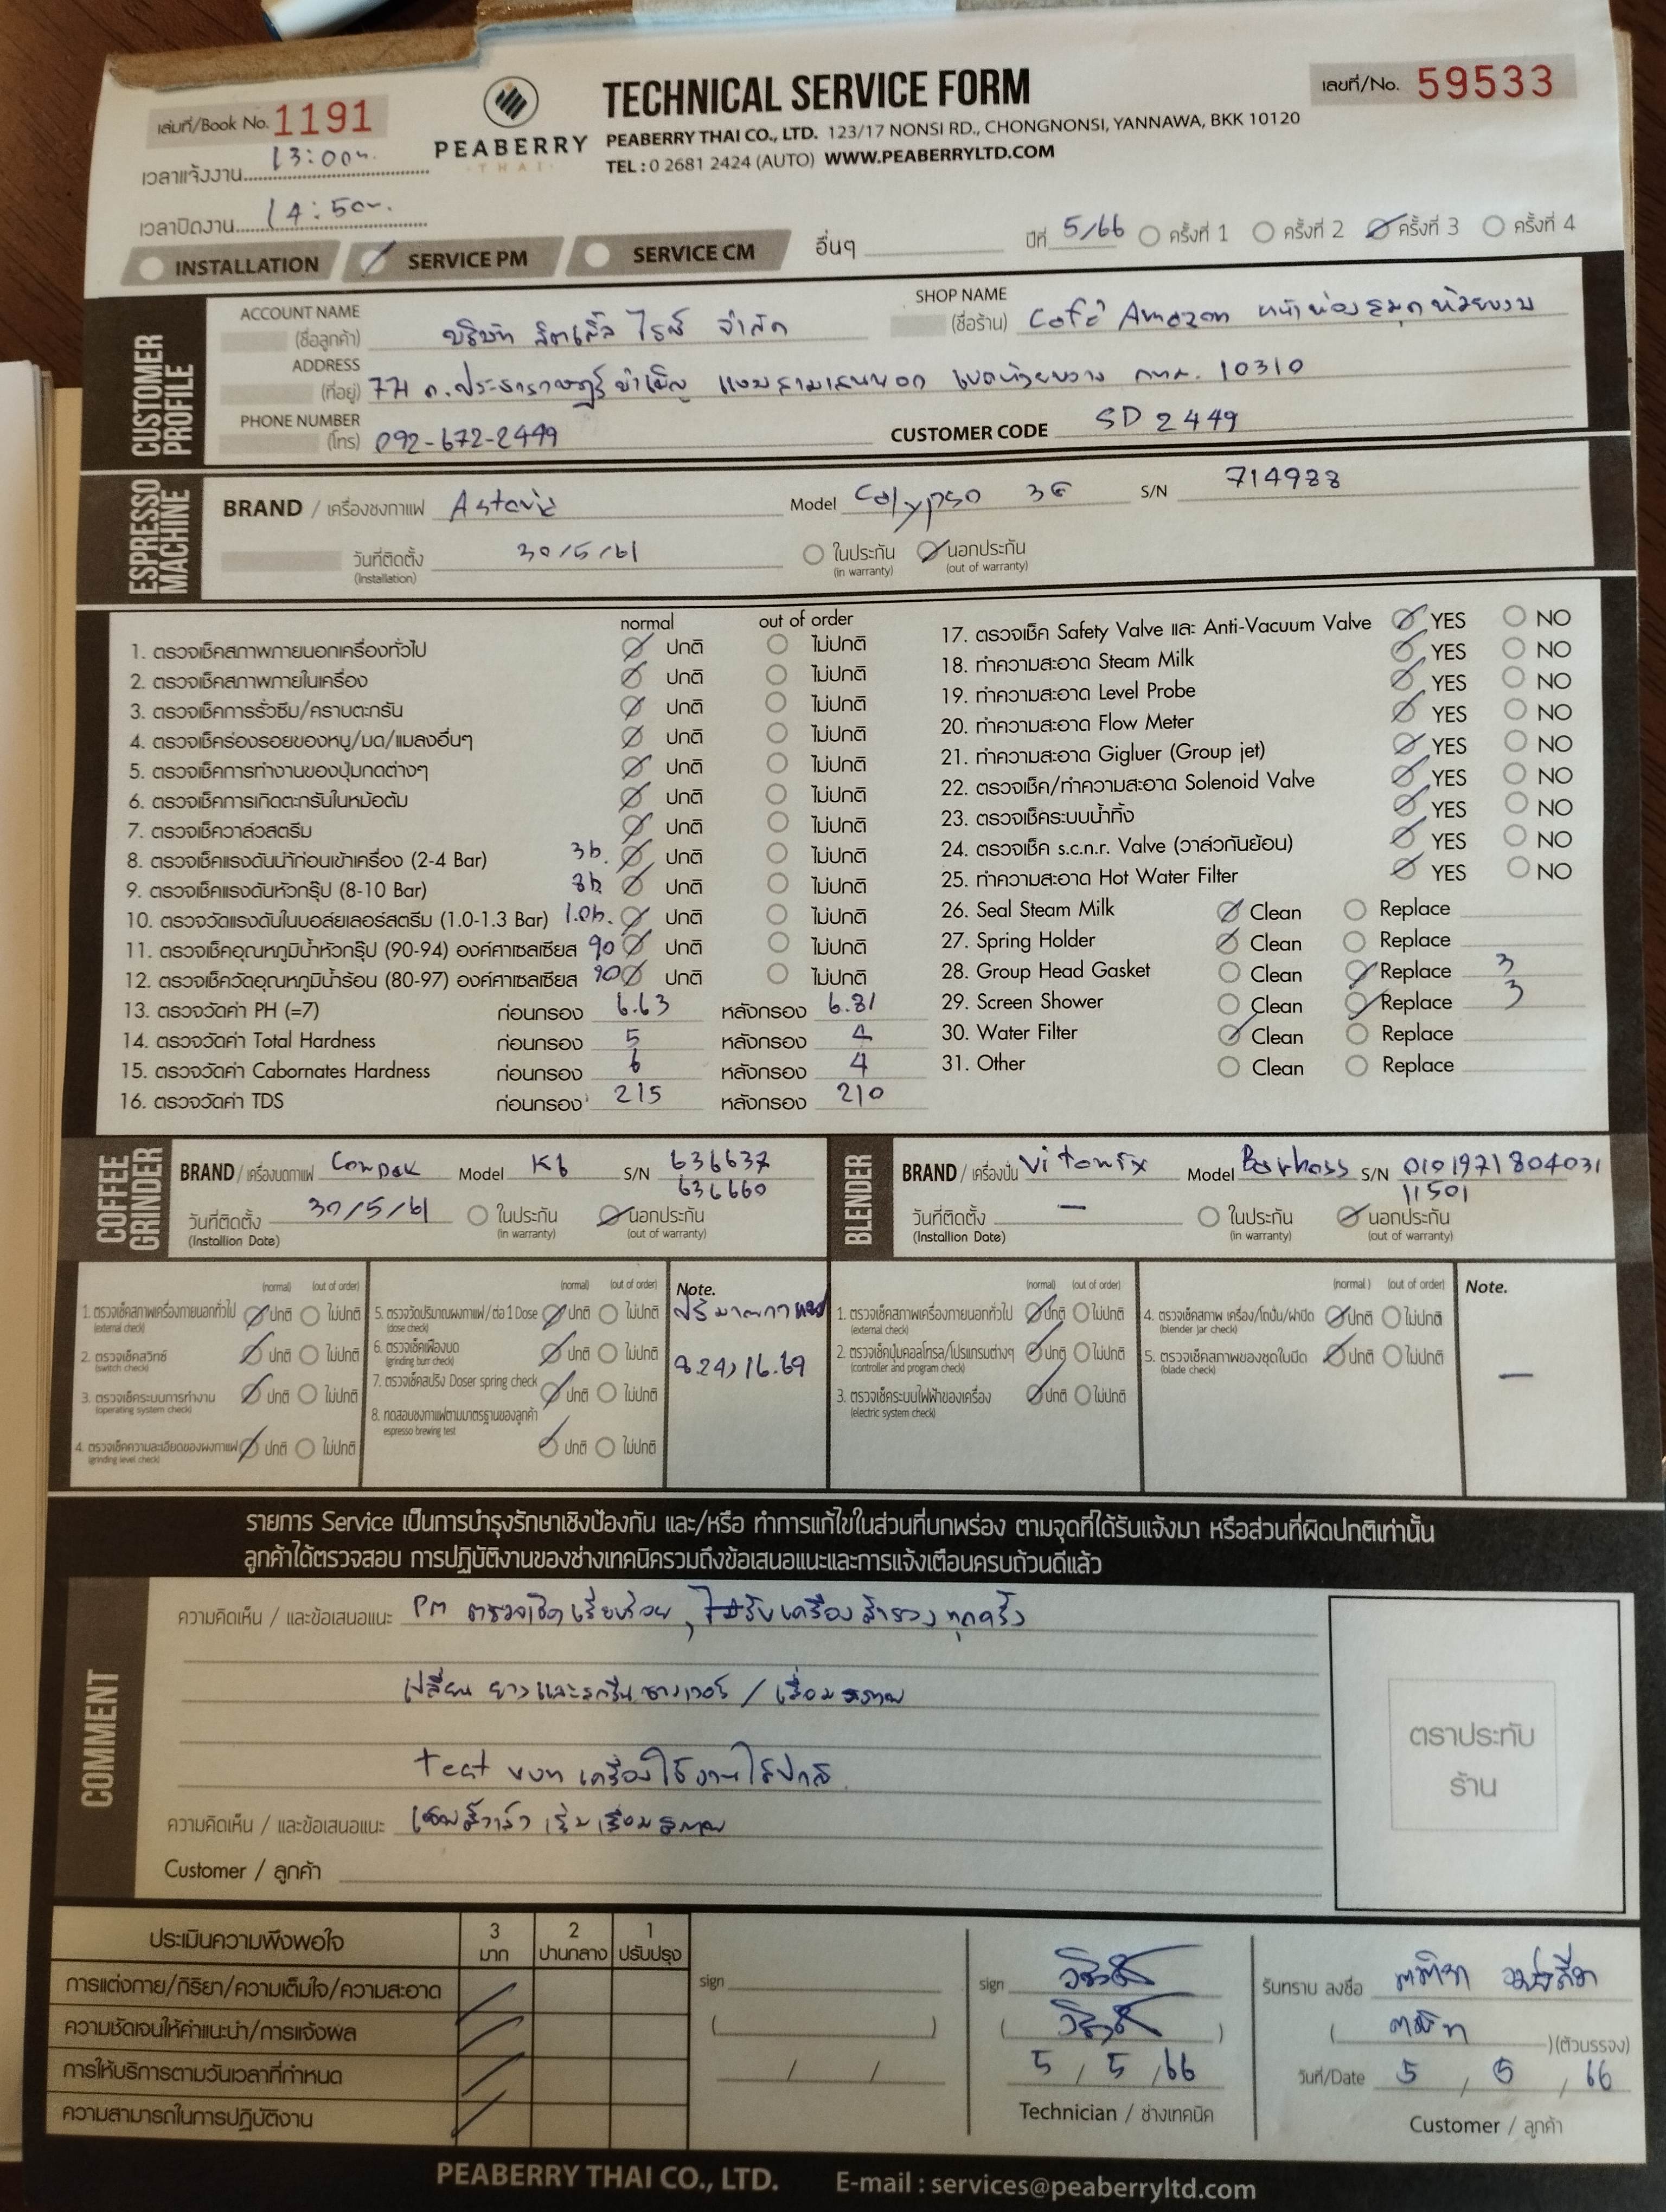 เล่มที่/Book No. 1191
PEABERRY
THAI
TECHNICAL SERVICE FORM
เลขที่/No. 59533
PEABERRY THAI CO., LTD. 123/17 NONSI RD., CHONGNONSI, YANNAWA, BKK 10120
TEL : 0 2681 2424 (AUTO) WWW.PEABERRYLTD.COM
เวลาแจ้งงาน 13:00น.
เวลาปิดงาน 14:50น.
INSTALLATION SERVICE PM SERVICE CM อื่นๆ ปีที่ 5/66 ครั้งที่ 1 ครั้งที่ 2 ครั้งที่ 3 ครั้งที่ 4
CUSTOMER PROFILE
ACCOUNT NAME (ชื่อลูกค้า) บริษัท ลิตเติ้ล ไรซ์ จำกัด
SHOP NAME (ชื่อร้าน) Café Amazon หน้าห้องสมุดห้วยขวาง
ADDRESS (ที่อยู่) 771 ถ.ประชาราษฎร์บำเพ็ญ แขวงสามเสนนอก เขตห้วยขวาง กทม. 10310
PHONE NUMBER (โทร) 092-672-2449 CUSTOMER CODE SD 2449
ESPRESSO MACHINE
BRAND / เครื่องชงกาแฟ Model Calypso 3G S/N 714988
วันที่ติดตั้ง (Installation) 30/5/61 ในประกัน (in warranty) นอกประกัน (out of warranty)
normal out of order
1. ตรวจเช็คสภาพภายนอกเครื่องทั่วไป ปกติ ไม่ปกติ
2. ตรวจเช็คสภาพภายในเครื่อง ปกติ ไม่ปกติ
3. ตรวจเช็คการรั่วซึม/คราบตะกรัน ปกติ ไม่ปกติ
4. ตรวจเช็คร่องรอยของหนู/มด/แมลงอื่นๆ ปกติ ไม่ปกติ
5. ตรวจเช็คการทำงานของปุ่มกดต่างๆ ปกติ ไม่ปกติ
6. ตรวจเช็คการเกิดตะกรันในหม้อต้ม ปกติ ไม่ปกติ
7. ตรวจเช็ควาล์วสตรีม ปกติ ไม่ปกติ
8. ตรวจเช็คแรงดันน้ำก่อนเข้าเครื่อง (2-4 Bar) 3b. ปกติ ไม่ปกติ
9. ตรวจเช็คแรงดันหัวกรุ๊ป (8-10 Bar) 8b. ปกติ ไม่ปกติ
10. ตรวจวัดแรงดันในบอล์ยเลอร์สตรีม (1.0-1.3 Bar) 1.0b. ปกติ ไม่ปกติ
11. ตรวจเช็คอุณหภูมิน้ำหัวกรุ๊ป (90-94) องศ์ศาเซลเซียส 90 ปกติ ไม่ปกติ
12. ตรวจเช็ควัดอุณหภูมิน้ำร้อน (80-97) องศ์ศาเซลเซียส 90 ปกติ ไม่ปกติ
13. ตรวจวัดค่า PH (=7) ก่อนกรอง 6.63 หลังกรอง 6.81
14. ตรวจวัดค่า Total Hardness ก่อนกรอง 5 หลังกรอง 4
15. ตรวจวัดค่า Cabornates Hardness ก่อนกรอง 6 หลังกรอง 4
16. ตรวจวัดค่า TDS ก่อนกรอง 215 หลังกรอง 210
17. ตรวจเช็ค Safety Valve และ Anti-Vacuum Valve YES NO
18. ทำความสะอาด Steam Milk YES NO
19. ทำความสะอาด Level Probe YES NO
20. ทำความสะอาด Flow Meter YES NO
21. ทำความสะอาด Gigluer (Group jet) YES NO
22. ตรวจเช็ค/ทำความสะอาด Solenoid Valve YES NO
23. ตรวจเช็คระบบน้ำทิ้ง YES NO
24. ตรวจเช็ค s.c.n.r. Valve (วาล์วกันย้อน) YES NO
25. ทำความสะอาด Hot Water Filter YES NO
26. Seal Steam Milk Clean Replace
27. Spring Holder Clean Replace
28. Group Head Gasket Clean Replace 3
29. Screen Shower Clean Replace 3
30. Water Filter Clean Replace
31. Other Clean Replace
COFFEE GRINDER
BRAND / เครื่องบดกาแฟ Compak Model K6 S/N 636637
636660
วันที่ติดตั้ง (Installion Date) 30/5/61 ในประกัน (in warranty) นอกประกัน (out of warranty)
BLENDER
BRAND / เครื่องปั่น Vitamix Model Barboss S/N 0101971804031
11501
วันที่ติดตั้ง (Installion Date) – ในประกัน (in warranty) นอกประกัน (out of warranty)
(normal) (out of order)
1. ตรวจเช็คสภาพเครื่องภายนอกทั่วไป (external check) ปกติ ไม่ปกติ
2. ตรวจเช็คสวิทซ์ (switch check) ปกติ ไม่ปกติ
3. ตรวจเช็คระบบการทำงาน (operating system check) ปกติ ไม่ปกติ
4. ตรวจเช็คความละเอียดของผงกาแฟ (grinding level check) ปกติ ไม่ปกติ
(normal) (out of order)
5. ตรวจวัดปริมาณผงกาแฟ/ต่อ 1 Dose (dose check) ปกติ ไม่ปกติ
6. ตรวจเช็คเฟืองบด (grinding burr check) ปกติ ไม่ปกติ
7. ตรวจเช็คสปริง Doser spring check ปกติ ไม่ปกติ
8. ทดสอบชงกาแฟตามมาตรฐานของลูกค้า espresso brewing test ปกติ ไม่ปกติ
Note.
ปริมาณกาแฟ
8.24, 16.69
(normal) (out of order)
1. ตรวจเช็คสภาพเครื่องภายนอกทั่วไป (external check) ปกติ ไม่ปกติ
2. ตรวจเช็คปุ่มคอลโทรล/โปรแกรมต่างๆ (controller and program check) ปกติ ไม่ปกติ
3. ตรวจเช็คระบบไฟฟ้าของเครื่อง (electric system check) ปกติ ไม่ปกติ
(normal) (out of order)
4. ตรวจเช็คสภาพ เครื่อง/โถปั่น/ฝาปิด (blender jar check) ปกติ ไม่ปกติ
5. ตรวจเช็คสภาพของชุดใบมีด (blade check) ปกติ ไม่ปกติ
Note.
–
รายการ Service เป็นการบำรุงรักษาเชิงป้องกัน และ/หรือ ทำการแก้ไขในส่วนที่บกพร่อง ตามจุดที่ได้รับแจ้งมา หรือส่วนที่ผิดปกติเท่านั้น
ลูกค้าได้ตรวจสอบ การปฏิบัติงานของช่างเทคนิครวมถึงข้อเสนอแนะและการแจ้งเตือนครบถ้วนดีแล้ว
COMMENT
ความคิดเห็น / และข้อเสนอแนะ PM ตรวจเช็คเรียบร้อย, เครื่องสำรองทุกครั้ง
เปลี่ยน ยางและสกรีนชาวเวอร์ / เสื่อมสภาพ
Test ชงกา เครื่องใช้งานได้ปกติ
ความคิดเห็น / และข้อเสนอแนะ เริ่มเสื่อมสภาพ
Customer / ลูกค้า
ตราประทับ
ร้าน
ประเมินความพึงพอใจ 3 มาก 2 ปานกลาง 1 ปรับปรุง
การแต่งกาย/กิริยา/ความเต็มใจ/ความสะอาด
ความชัดเจนให้คำแนะนำ/การแจ้งผล
การให้บริการตามวันเวลาที่กำหนด
ความสามารถในการปฏิบัติงาน
sign
( )
/ /
sign
( )
5 / 5 / 66
Technician / ช่างเทคนิค
รับทราบ ลงชื่อ
( ) (ตัวบรรจง)
วันที่/Date 5 / 5 / 66
Customer / ลูกค้า
PEABERRY THAI CO., LTD. E-mail : services@peaberryltd.com